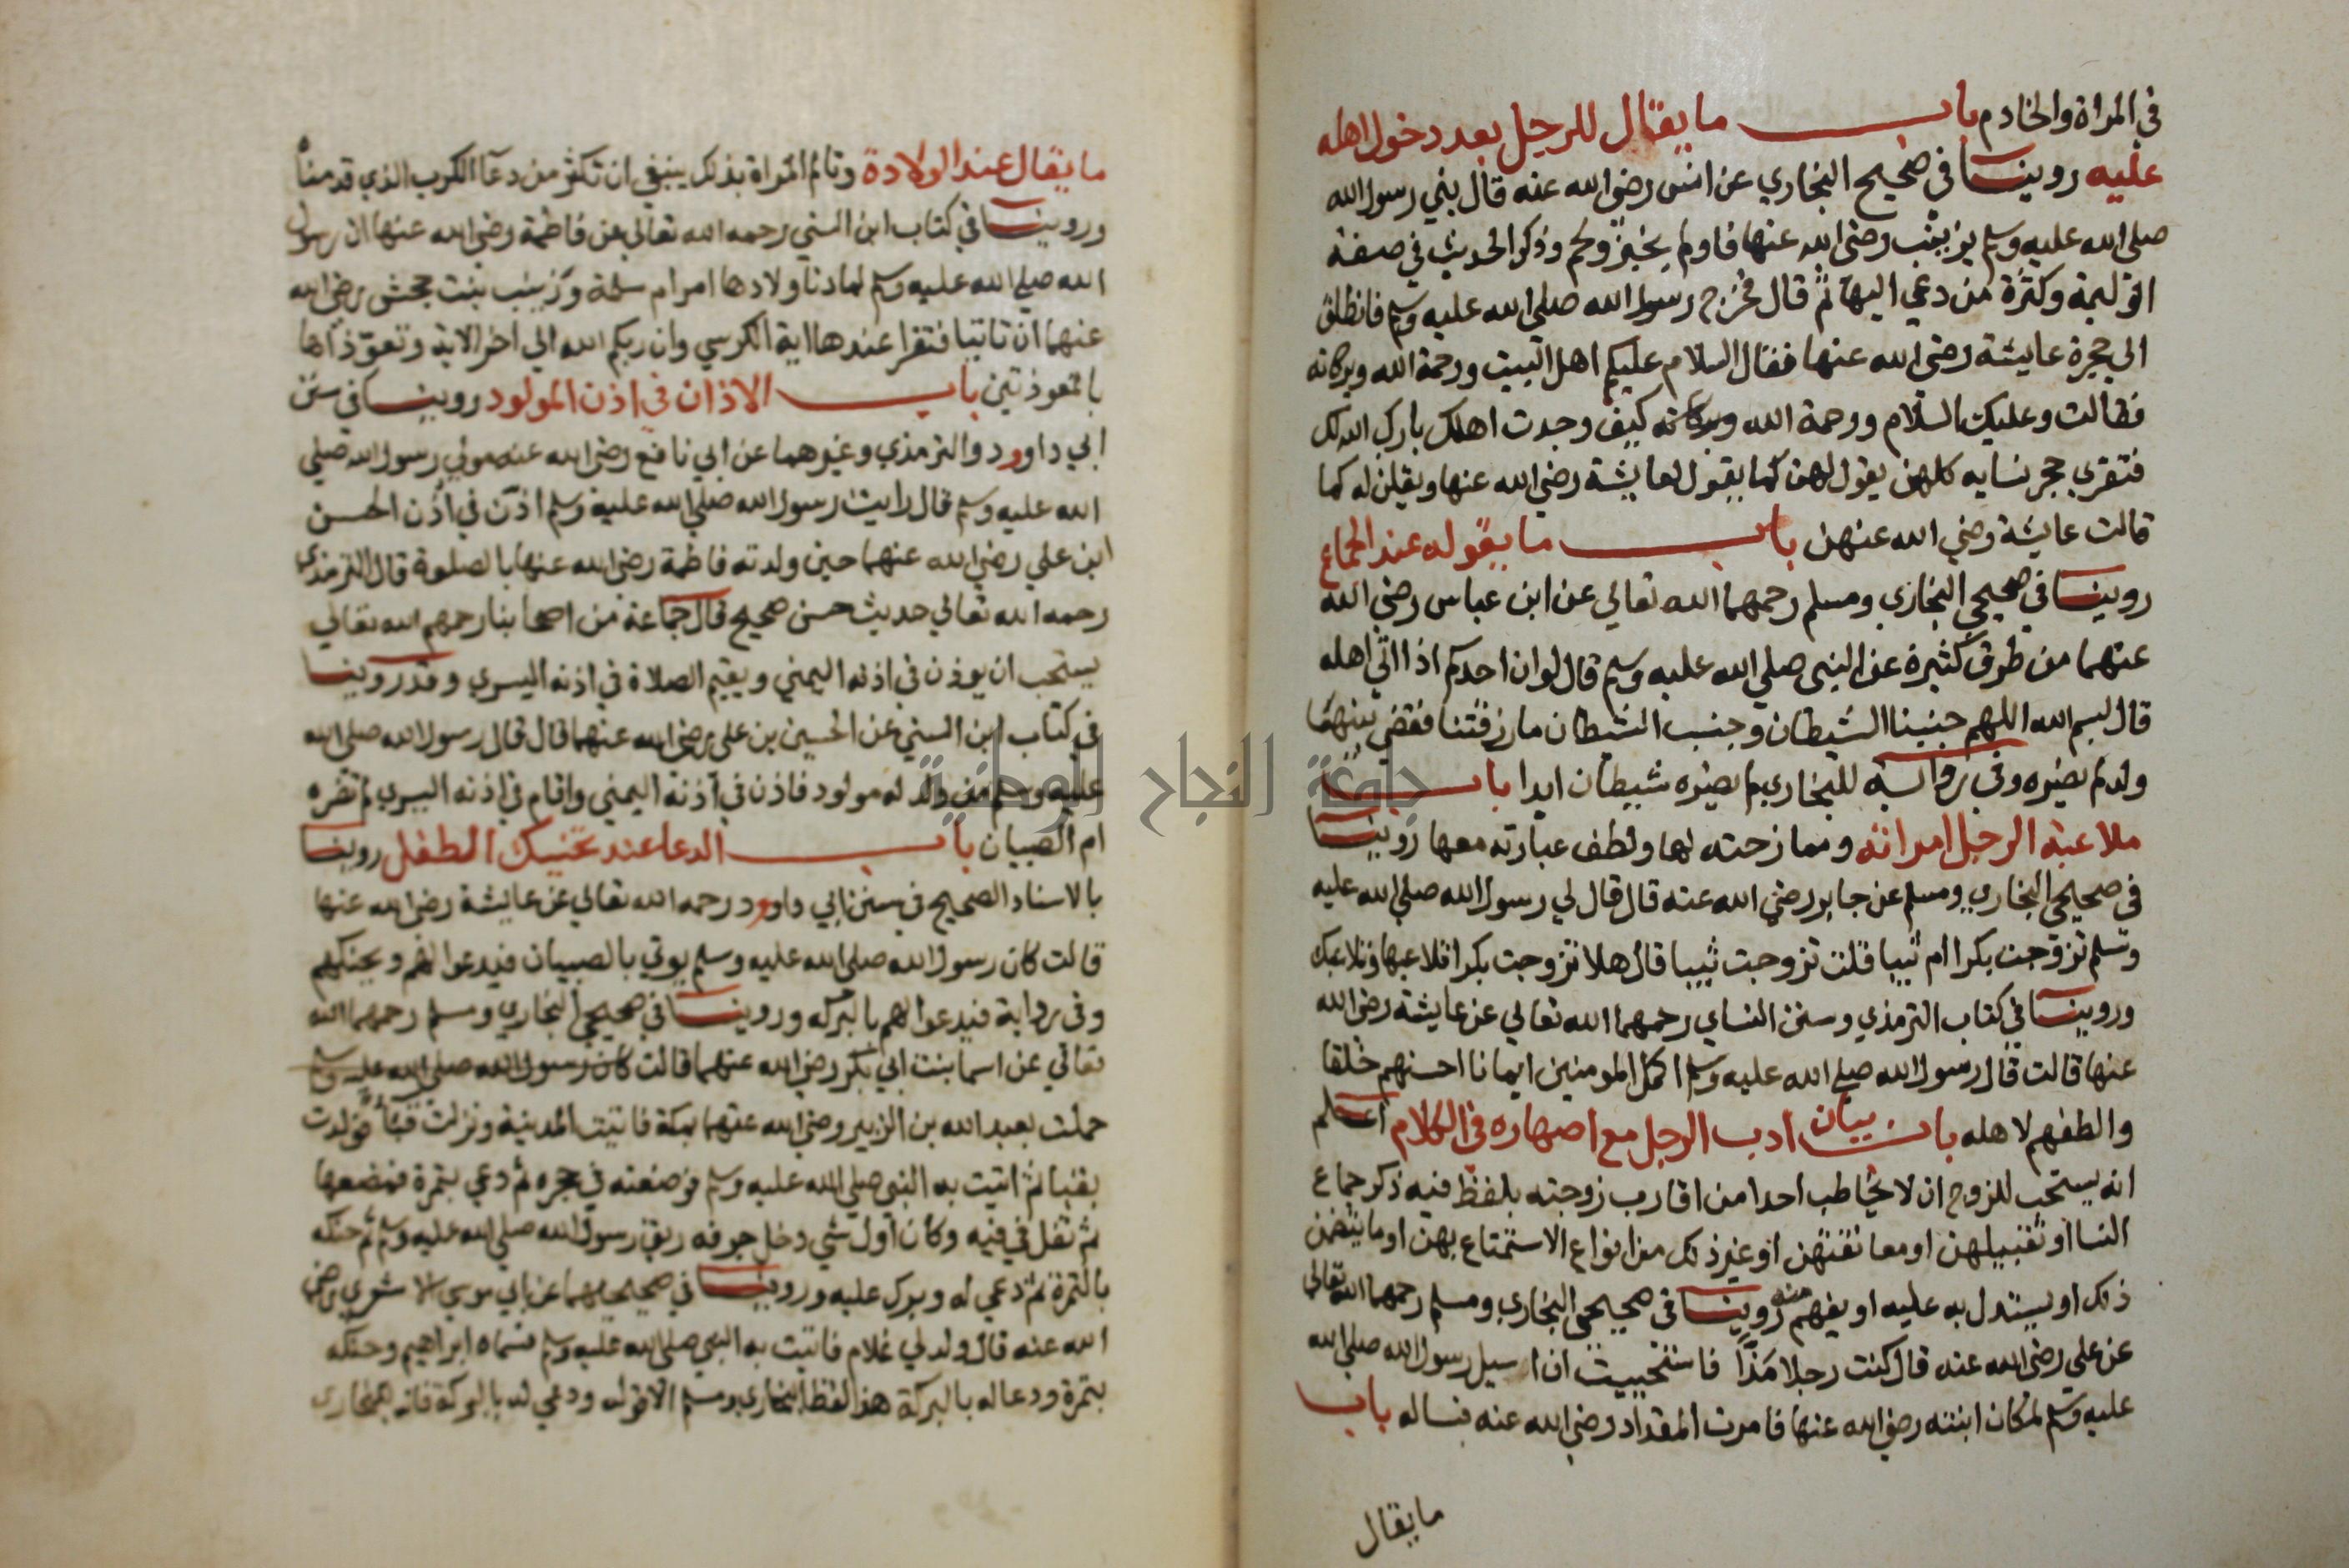 في المراة والخادم باب ما يقال للرجل بعد دخول اهله
عليه روينا في صحيح البخاري عن انس رضي الله عنه قال بني رسول الله
صلي الله عليه وسلم بزينب رضي الله عنها فاولم بخبز ولحم وذكر الحديث في صفة
الوليمة وكثرة من دعي اليها ثم قال فخرج رسول الله صلي الله عليه وسلم فانطلق
الي حجرة عايشة رضي الله عنها فقال السلام عليكم اهل البيت ورحمة الله وبركاته
فقالت وعليك السلام ورحمة الله وبركاته كيف وجدت اهلك بارك الله لك
فتقري حجر نسايه كلهن يقول لهن كما يقول لعايشة رضي الله عنها ويقلن له كما
قالت عايشة رضي الله عنهن باب ما يقوله عند الجماع
روينا في صحيحي البخاري ومسلم رحمهما الله تعالي عن ابن عباس رضي الله
عنهما من طرق كثيرة عن النبي صلي الله عليه وسلم قال لو ان احدكم اذا اتي اهله
قال بسم الله اللهم جنبنا الشيطان وجنب الشيطان ما رزقتنا فقضي بينهما
ولد لم يضره وفي رواية للبخاري لم يضره شيطان ابدا باب
ملاعبة الرجل امراته وممازحته لها ولطف عبارته معها روينا
في صحيحي البخاري ومسلم عن جابر رضي الله عنه قال قال لي رسول الله صلي الله عليه
وسلم تزوجت بكرا ام ثيبا قلت تزوجت ثيبا قال هلا تزوجت بكرا تلاعبها وتلاعبك
وروينا في كتاب الترمذي وسنن النساي رحمهما الله تعالي عن عايشة رضي الله
عنها قالت قال رسول الله صلي الله عليه وسلم اكمل المومنين ايمانا احسنهم خلقا
والطفهم لاهله باب بيان ادب الرجل مع اصهاره في الكلام اعلم
انه يستحب للزوج ان لا يخاطب احدا من اقارب زوجته بلفظ فيه ذكر جماع
النسا او تقبيلهن او معانقتهن او غير ذلك من انواع الاستمتاع بهن او ما يتضمن
ذلك او يستدل به عليه او يفهم منه روينا في صحيحي البخاري ومسلم رحمهما الله تعالي
عن علي رضي الله عنه قال كنت رجلا مذا فاستحييت ان اسيل رسول الله صلي الله
عليه وسلم لمكان ابنته رضي الله عنها فامرت المقداد رضي الله عنه فساله باب
ما يقال
ما يقال عند الولادة وتالم المراة بذلك ينبغي ان تكثر من دعآ الكرب الذي قدمناه
وروينا في كتاب ابن السني رحمه الله تعالي عن فاطمة رضي الله عنها ان رسول
الله صلي الله عليه وسلم لما دنا ولادها امر ام سلمة وزينب بنت جحش رضي الله
عنهما ان تاتيا فتقرا عندها اية الكرسي وان ربكم الله الي اخر الاية وتعوذاها
بالمعوذتين باب الاذان في اذن المولود روينا في سنن
ابي داوود والترمذي وغيرهما عن ابي نافع رضي الله عنه مولي رسول الله صلي
الله عليه وسلم قال رايت رسول الله صلي الله عليه وسلم اذن في اذن الحسن
ابن علي رضي الله عنهما حين ولدته فاطمة رضي الله عنها بالصلوة قال الترمذي
رحمه الله تعالي حديث حسن صحيح قال جماعة من اصحابنا رحمهم الله تعالي
يستحب ان يوذن في اذنه اليمني ويقيم الصلاة في اذنه اليسري وقد روينا
في كتاب ابن السني عن الحسين بن علي رضي الله عنهما قال قال رسول الله صلي الله
عليه وسلم من ولد له مولود فاذن في اذنه اليمني واقام في اذنه اليسري لم تضره
ام الصبيان باب الدعا عند تحنيك الطفل روينا
بالاسناد الصحيح في سنن ابي داوود رحمه الله تعالي عن عايشة رضي الله عنها
قالت كان رسول الله صلي الله عليه وسلم يوتي بالصبيان فيدعوا لهم ويحنكهم
وفي رواية فيدعوا لهم بالبركه وروينا في صحيحي البخاري ومسلم رحمهما الله
تعالي عن اسما بنت ابي بكر رضي الله عنهما قالت كان رسول الله صلي الله عليه وسلم
حملت بعبد الله بن الزبير رضي الله عنهما بمكة فاتيت المدينة ونزلت قباً فولدت
بقبا ثم اتيت به النبي صلي الله عليه وسلم فوضعته في حجره ثم دعي بتمرة فمضغها
ثم تفل في فيه وكان اول شي دخل جوفه ريق رسول الله صلي الله عليه وسلم ثم حنكه
بالتمرة ثم دعي له وبرك عليه وروينا في صحيحيهما عن ابي موسي الاشعري رضي
الله عنه قال ولد لي غلام فاتيت به النبي صلي الله عليه وسلم فسماه ابراهيم وحنكه
بتمرة ودعا له بالبركة هذا لفظ البخاري ومسلم الا قوله ودعي له بالبركة فانه للبخاري
جامعة النجاح الوطنية